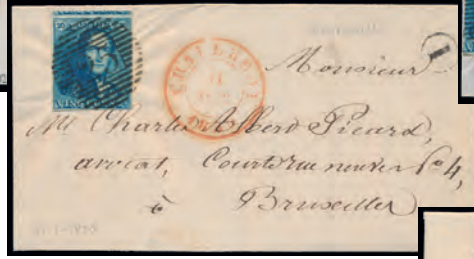 20
VINGT
Monsieur
1
Mr Charles Albert Picard,
avocat, Courte rue neuve, No 4,
à Bruxelles